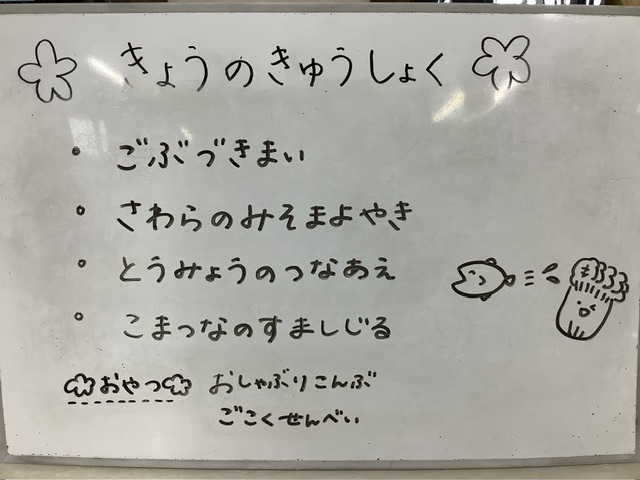 きょうのきゅうしょく
・ごぶづきまい
・さわらのみそまよやき
・とうみょうのつなあえ
・こまつなのすましじる
おやつ おしゃぶりこんぶ
ごこくせんべい